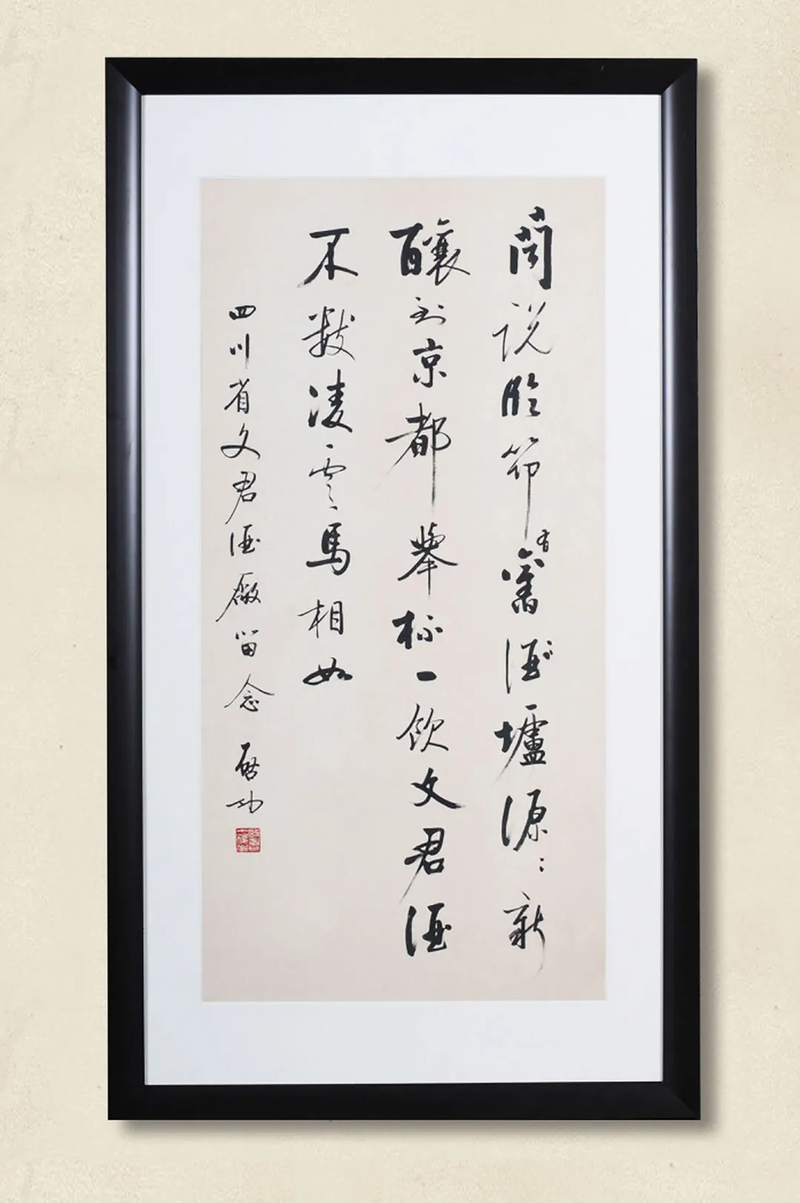 闻说临邛有旧酒垆源〻新
酿到京都举杯一饮文君酒
不数凌云马相如
四川省文君酒厂留念 启功